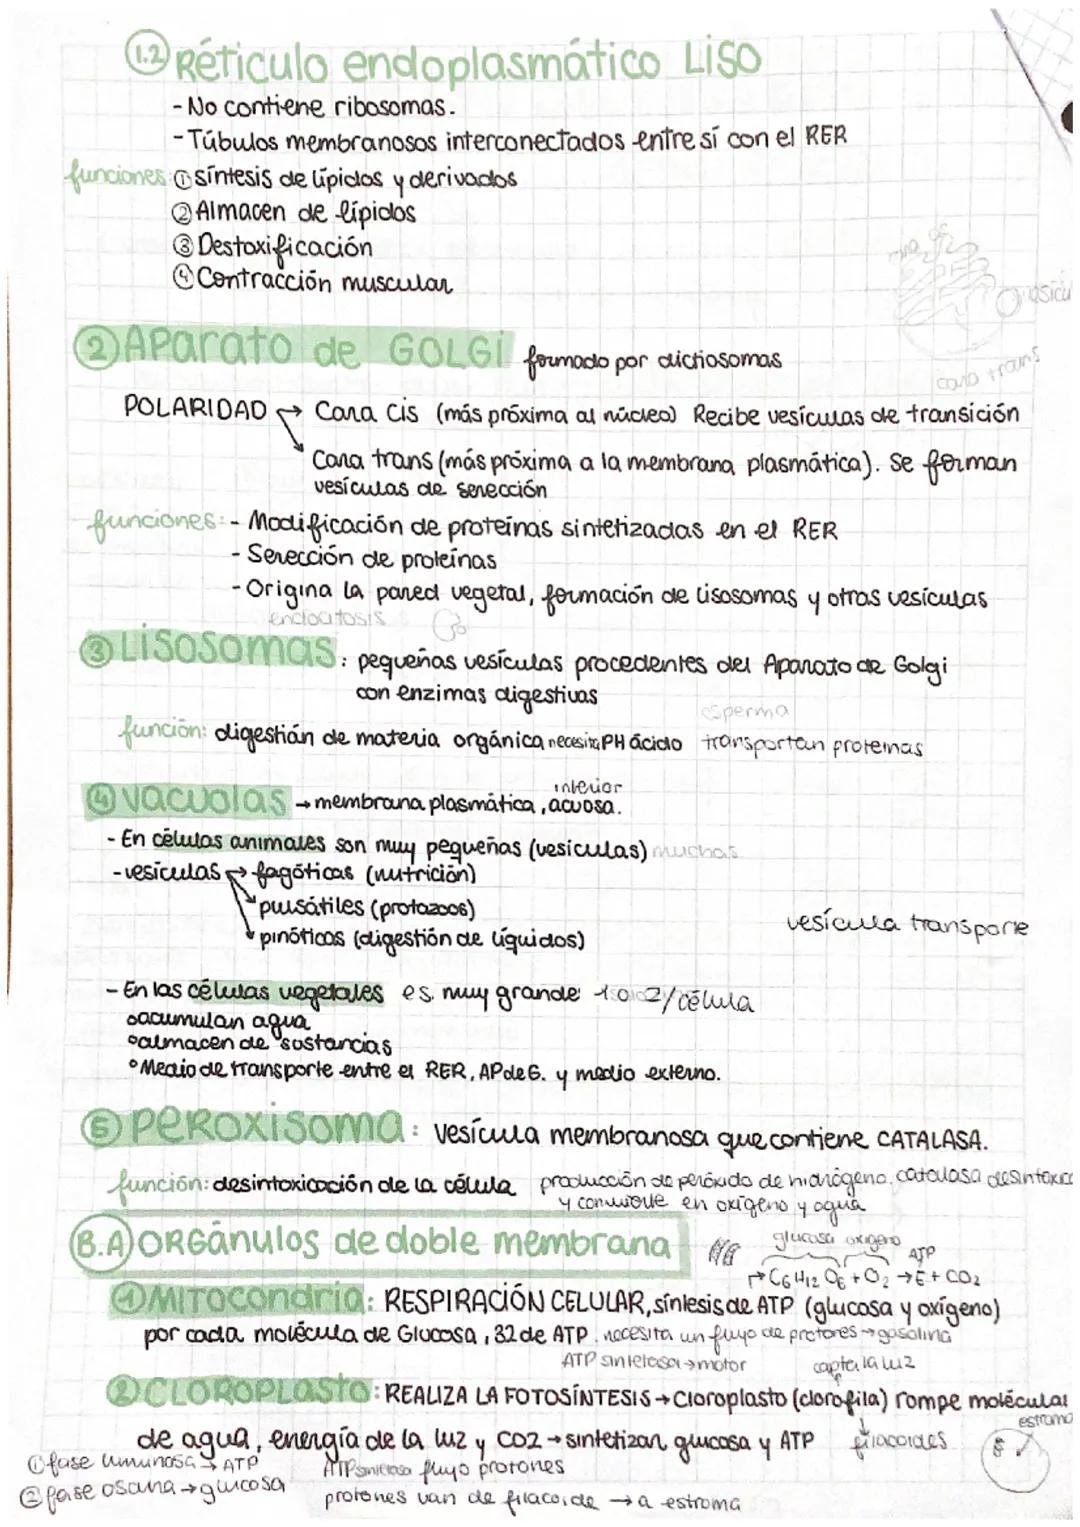 1.2 Réticulo endoplasmático Liso
- No contiene ribosomas.
- Túbulos membranosos interconectados entre sí con el RER
funciones: ① síntesis de lípidos y derivados
② Almacen de lípidos
③ Destoxificación
④ Contracción muscular
② Aparato de GOLGi formado por dictiosomas
cara trans
POLARIDAD → Cara cis (más próxima al núcleo) Recibe vesículas de transición
Cara trans (más próxima a la membrana plasmática). Se forman
vesículas de secreción
funciones: - Modificación de proteínas sintetizadas en el RER
- Secreción de proteínas
- Origina la pared vegetal, formación de lisosomas y otras vesículas
endocitosis
③ Lisosomas: pequeñas vesículas procedentes del Aparato de Golgi
con enzimas digestivas
esperma
función: digestión de materia orgánica necesita PH ácido transportan proteinas
④ vacuolas → membrana plasmática, interior acuosa.
- En células animales son muy pequeñas (vesiculas) muchas
- vesículas → fagóticas (nutrición)
pulsátiles (protozoos)
pinóticas (digestión de líquidos)
vesícula transporte
- En las células vegetales es muy grande 1 o 2/célula
° acumulan agua
° almacen de sustancias
° Medio de transporte entre el RER, AP de G. y medio externo.
⑤ Peroxisoma: vesícula membranosa que contiene CATALASA.
función: desintoxicación de la célula producción de peróxido de hidrógeno. catalasa desintoxica
y convierte en oxígeno y agua
B.A) ORGánulos de doble membrana
glucosa oxigeno ATP
→ C6 H12 O6 + O2 → E + CO2
① MITOCondria: RESPIRACIÓN CELULAR, síntesis de ATP (glucosa y oxígeno)
por cada molécula de Glucosa, 32 de ATP. necesita un flujo de protones → gasolina
ATP sintetasa → motor capta la luz
② CLOROPLasto: REALIZA LA FOTOSÍNTESIS → Cloroplasto (clorofila) rompe moléculas
estroma
de agua, energía de la luz y CO2 → sintetizan glucosa y ATP filacoides
① fase luminosa → ATP ATPsintetasa flujo protones
② fase oscura → glucosa protones van de filacoide → a estroma